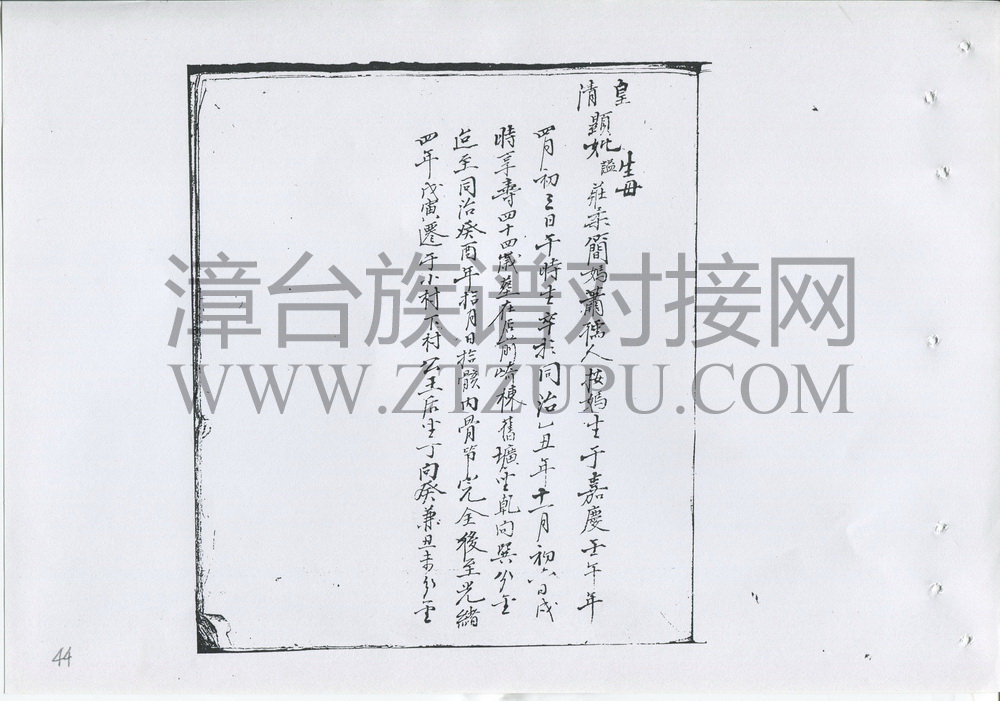 皇
生母
清顯妣謚莊柔簡媽蕭孺人按媽生于嘉慶壬午年
四月初三日午時生卒於同治乙丑年十一月初六日戌
時享壽四十四歲墓在居前崎棟舊壙坐乹向巽分金
迨至同治癸酉年拾月日拾骸內骨节完全後至光緒
四年戊寅遷于小村下村公王后坐丁向癸兼丑未分金
漳台族谱对接网
WWW.ZTZUPU.COM
44